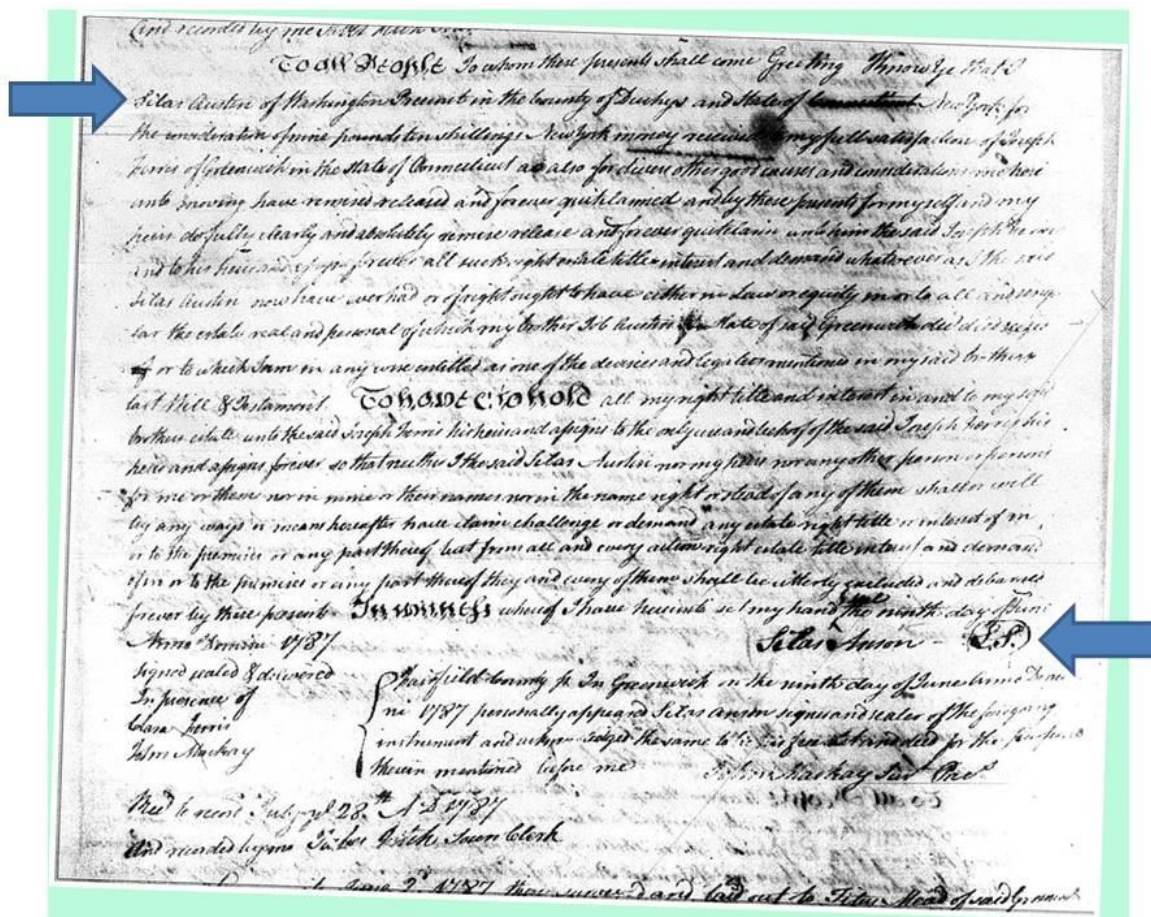 And recorded by me
To all People To whom these presents shall come Greeting Know Ye that I
Silas Austin of Washington Precinct in the County of Duchys and State of Connecticut New York for
the consideration of nine pounds ten shillings New York money received to my full satisfaction of Joseph
Ferris of Greenwich in the State of Connecticut as also for divers other good causes and considerations me here
unto moving have remised released and forever quitclaimed and by these presents for myself and my
heirs do fully clearly and absolutely remise release and forever quitclaim unto him the said Joseph Ferris
and to his heirs and assigns forever all such right estate title interest and demand whatsoever as I the said
Silas Austin now have ever had or of right ought to have either in Law or equity in or to all and singu
lar the estate real and personal of which my brother Job Austin late of said Greenwich did died seized
of or to which I am in any wise entitled as one of the devisees and legatees mentioned in my said brothers
last Will & Testament To have & to hold all my right title and interest in and to my said
brothers estate unto the said Joseph Ferris his heirs and assigns to the only use and behoof of the said Joseph Ferris his
heirs and assigns forever so that neither I the said Silas Austin nor my heirs nor any other person or persons
for me or them nor in mine or their names nor in the name right or stead of any of them shall or will
by any ways or means hereafter have claim challenge or demand any estate right title or interest of in
or to the premises or any part thereof but from all and every action right estate title interest and demand
of in or to the premises or any part thereof they and every of them shall be utterly excluded and debarred
forever by these presents In witness whereof I have hereunto set my hand & seal the ninth day of June
Anno Domini 1787 Silas Anson - L.S.
signed sealed & delivered
In presence of
Clara Ferris
John Mackay
Fairfield County ss In Greenwich on the ninth day of June Anno Domi
ni 1787 personally appeard Silas Anson signer and sealer of the foregoing
instrument and acknowledged the same to be his free act and deed for the purposes
therein mentioned before me John Mackay Just Pace
Recd to record July 28th AD 1787
And recorded by me Jabez Fitch Town Clerk
1787 then surveyed and laid out to Titus Mead of said Greenwich